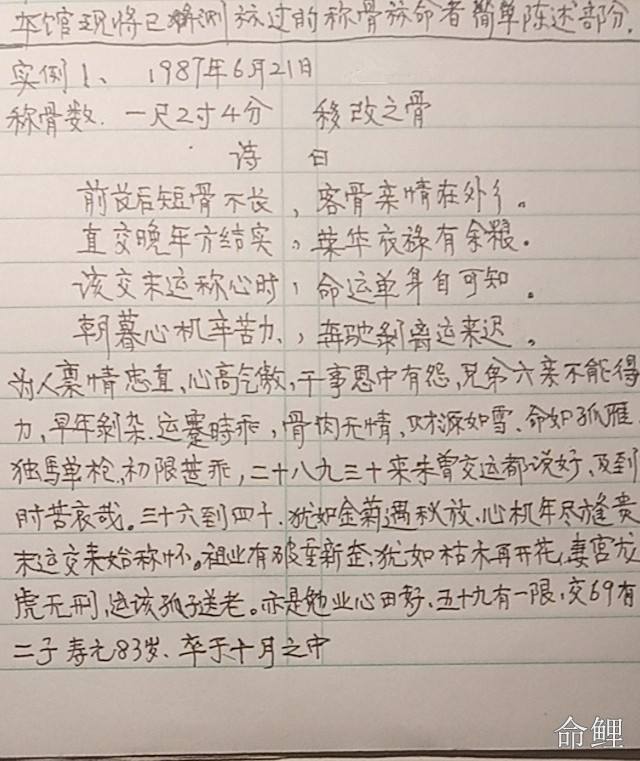 本馆现将已解测称过的称骨称命者简单陈述部分.
实例1、 1987年6月21日
称骨数. 一尺2寸4分 移改之骨
诗 曰
前长后短骨不长,客骨亲情在外乡。
直交晚年方结实,荣华衣禄有余粮。
该交末运称心时,命运单身自可知。
朝暮心机辛苦力,奔驰剥离运来迟。
为人禀情忠直、心高气傲,干事恩中有怨,兄弟六亲不能得
力,早年剥杂.运蹇時乖,骨肉无情,财源如雪、命如孤雁.
独馬单枪,初限甚乖,二十八九三十来未曾交运都说好、及到
时苦哀哉。三十六到四十、犹如金菊遇秋放、心机年尽逢贵
末运交来始称怀。祖业有破重新垒,犹如枯木再开花,妻宫龙
虎无刑,运该孤子送老。亦是勉业心田好、五十九有一限,交69有
二子 寿元83岁、卒于十月之中
命鲤